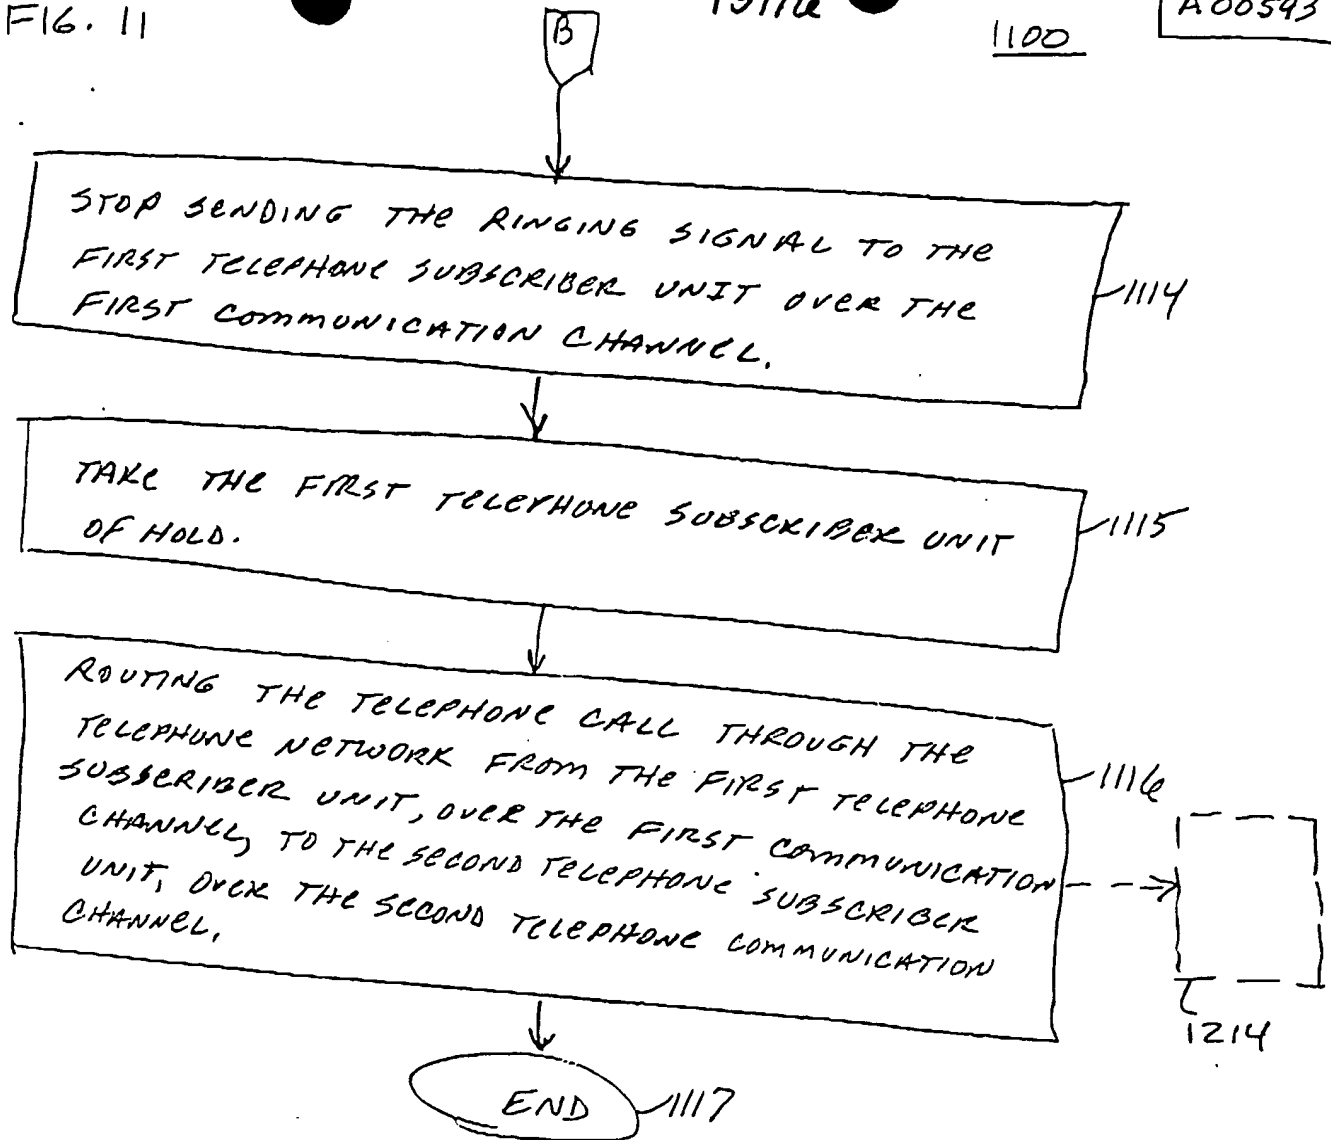 FIG. 11
B
13/16
1100
A00543
STOP SENDING THE RINGING SIGNAL TO THE
FIRST TELEPHONE SUBSCRIBER UNIT OVER THE
FIRST COMMUNICATION CHANNEL.
1114
TAKE THE FIRST TELEPHONE SUBSCRIBER UNIT
OF HOLD.
1115
ROUTING THE TELEPHONE CALL THROUGH THE
TELEPHONE NETWORK FROM THE FIRST TELEPHONE
SUBSCRIBER UNIT, OVER THE FIRST COMMUNICATION
CHANNEL, TO THE SECOND TELEPHONE SUBSCRIBER
UNIT, OVER THE SECOND TELEPHONE COMMUNICATION
CHANNEL.
1116
1214
END
1117